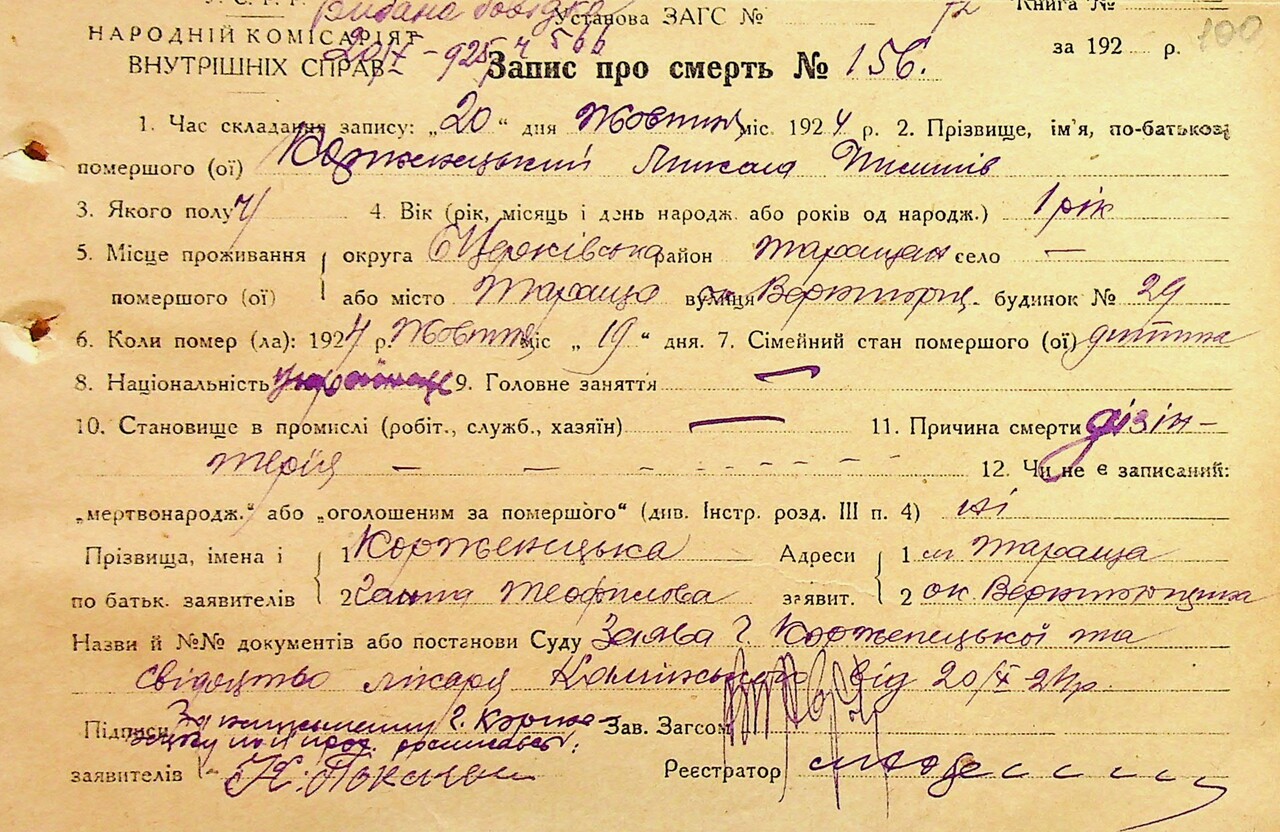 У. С. Р. Р. Видана довідка Установа ЗАГС № 72 Книга №
НАРОДНІЙ КОМІСАРІЯТ за 192 р. 100
ВНУТРІШНІХ СПРАВ Запис про смерть № 156.
1. Час складання запису: „20“ дня Жовтня міс. 1924 р. 2. Прізвище, ім'я, по-батькові
помершого (ої) Корженецький Микола
3. Якого полу Ч 4. Вік (рік, місяць і день народж. або років од народж.) 1 рік
5. Місце проживання округа Б Церківська район Таращан село —
помершого (ої) або місто Тараща вулиця будинок № 29
6. Коли помер (ла): 1924 р. Жовтня міс „19“ дня. 7. Сімейний стан помершого (ої) дитина
8. Національність українець 9. Головне заняття —
10. Становище в промислі (робіт., служб., хазяїн) — 11. Причина смерти дізін-
терія — — - - - - - - 12. Чи не є записаний:
„мертвонародж.“ або „оголошеним за помершого“ (див. Інстр. розд. III п. 4) ні
Прізвища, імена і 1 Корженецька Адреси 1 м Тараща
по батьк. заявителів 2 Ганна Теофилова заявит. 2 ок.
Назви й №№ документів або постанови Суду Заява Г. Корженецької та
свідоцтво лікаря Камінського від 20/X 24 р.
Підписи За Г. Корже- Зав. Загсом
заявителів Реєстратор